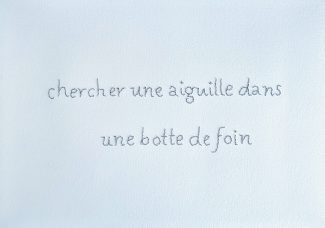 chercher une aiguille dans
une botte de foin